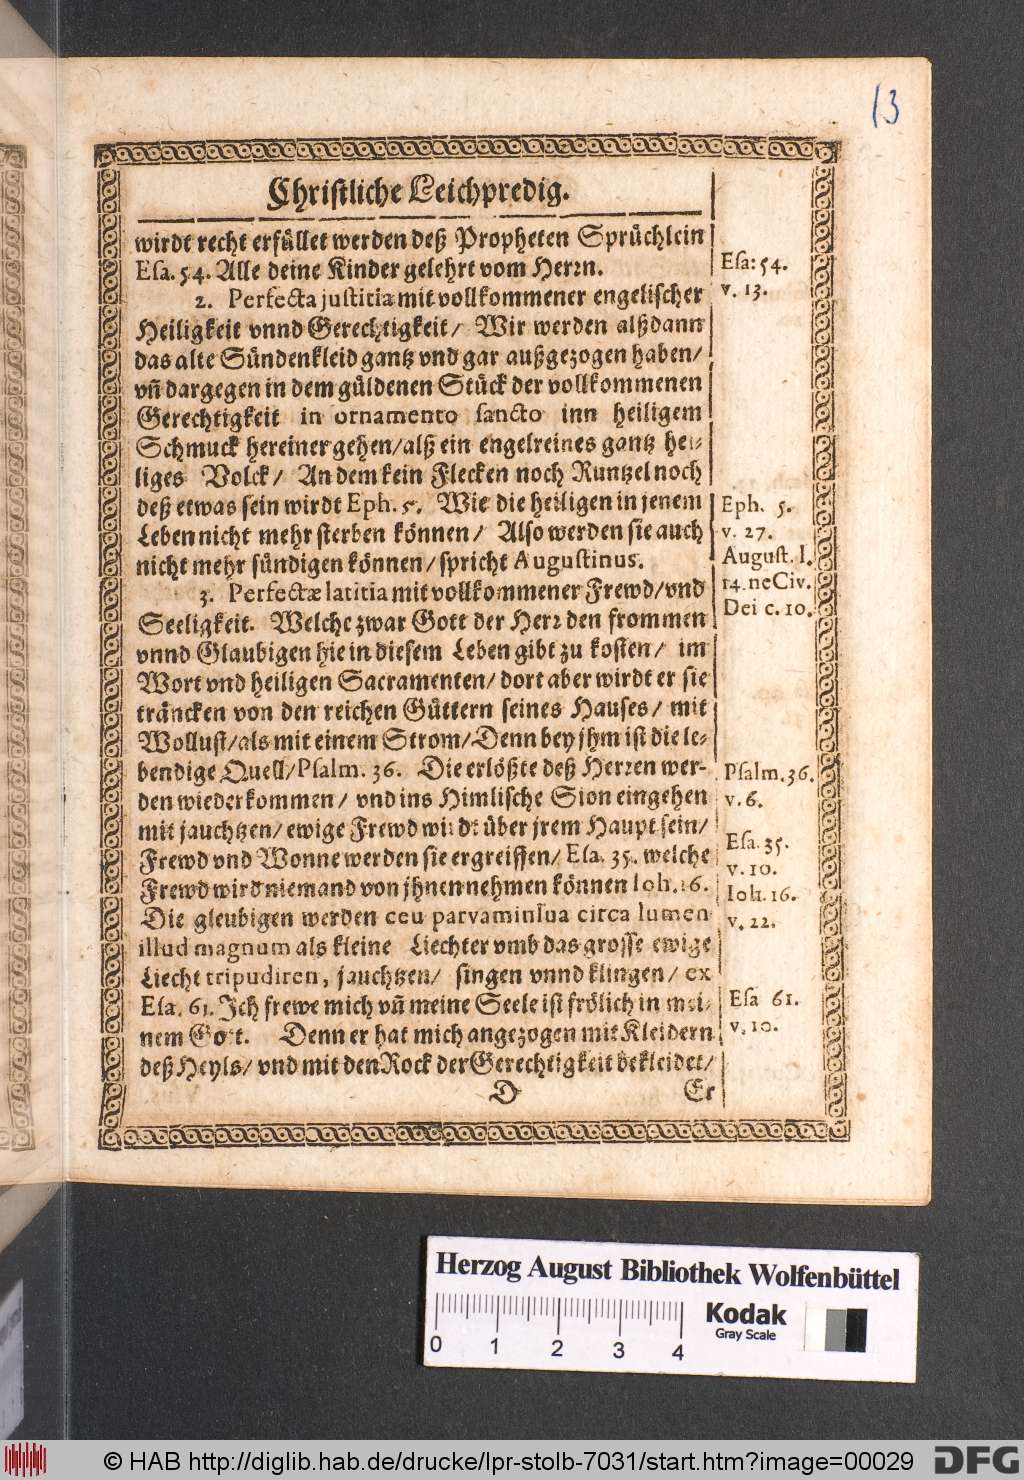 13
Christliche Leichpredig.
wirdt recht erfüllet werden deß Propheten Sprüchlein
Esa. 54. Alle deine Kinder gelehrt vom Herrn.
Esa: 54.
v. 13.
2. Perfecta justitia mit vollkommener engelischer
Heiligkeit vnnd Gerechtigkeit/ Wir werden alßdann
das alte Sündenkleid gantz vnd gar außgezogen haben/
vñ dargegen in dem güldenen Stück der vollkommenen
Gerechtigkeit in ornamento sancto inn heiligem
Schmuck hereiner gehen/ alß ein engelreines gantz hei-
liges Volck/ An dem kein Flecken noch Runtzel noch
deß etwas sein wirdt Eph. 5. Wie die heiligen in jenem
Leben nicht mehr sterben können/ Also werden sie auch
nicht mehr sündigen können/ spricht Augustinus.
Eph. 5.
v. 27.
August. l.
14. ne Civ.
Dei c. 10.
3. Perfectæ latitia mit vollkommener Frewd/ vnd
Seeligkeit. Welche zwar Gott der Herr den frommen
vnnd Glaubigen hie in diesem Leben gibt zu kosten/ im
Wort vnd heiligen Sacramenten/ dort aber wirdt er sie
träncken von den reichen Güttern seines Hauses/ mit
Wollust/ als mit einem Strom/ Denn bey jhm ist die le-
bendige Quell/ Psalm. 36. Die erlößte deß Herren wer-
den wieder kommen/ vnd ins Himlische Sion eingehen
mit jauchtzen/ ewige Frewd wirdt über jrem Haupt sein/
Frewd vnd Wonne werden sie ergreiffen/ Esa. 35. welche
Frewd wird niemand von jhnen nehmen können Ioh. 16.
Die gleubigen werden ceu parva minsua circa lumen
illud magnum als kleine Liechter vmb das grosse ewige
Liecht tripudiren, jauchtzen/ singen vnnd klingen/ ex
Esa. 61. Jch frewe mich vñ meine Seele ist frölich in mei-
nem Gott. Denn er hat mich angezogen mit Kleidern
deß Heyls/ vnd mit den Rock der Gerechtigkeit bekleidet/
Psalm. 36.
v. 6.
Esa. 35.
v. 10.
Ioh. 16.
v. 22.
Esa 61.
v. 10.
D
Er
Herzog August Bibliothek Wolfenbüttel
0 1 2 3 4
Kodak
Gray Scale
© HAB http://diglib.hab.de/drucke/lpr-stolb-7031/start.htm?image=00029
DFG